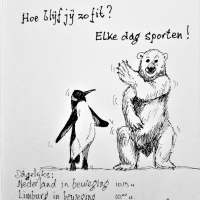 Hoe blijf jij zo fit?
Elke dag sporten!
Dagelijks:
Nederland in beweging 10:15 u
Limburg in beweging 10:00 u